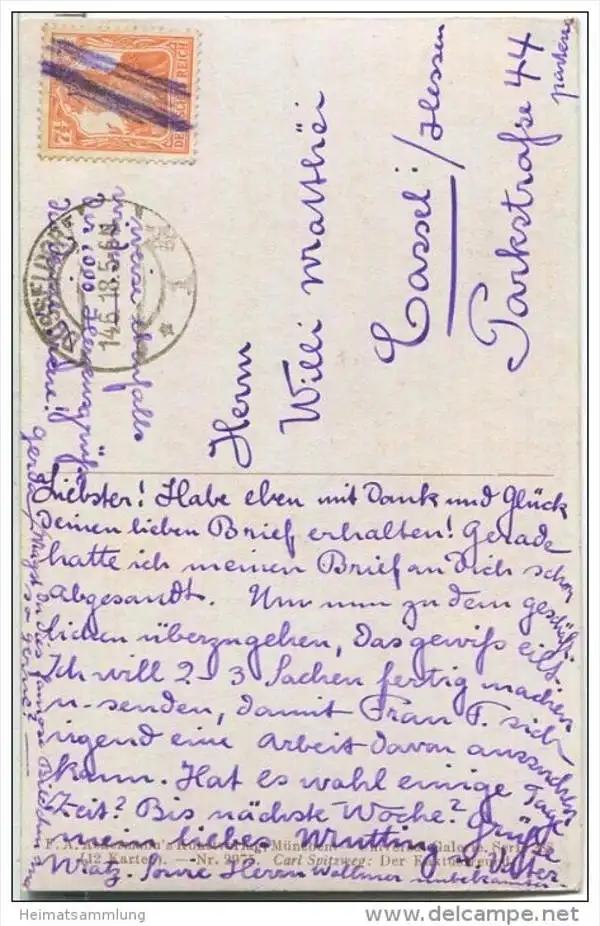 7½
DEUTSCHES REICH
DÜSSELDORF
14.6.18.5-6N
* 1
Herrn
Willi Matthëi
Cassel i/Hessen
Parkstraße 44
Liebster! Habe eben mit Dank und Glück
Deinen lieben Brief erhalten! Gerade
hatte ich meinen Brief an Dich schon
abgesandt. Um nun zu dem geschäft-
lichen überzugehen, das gewiß eilt.
Ich will 2-3 Sachen fertig machen
u. senden, damit Frau F. sich
irgend eine Arbeit davon aussuchen
kann. Hat es wohl einige Tage
Zeit? Bis nächste Woche? Grüße
mein liebes Mutting, Vater
Matz. Sowie Herrn Wollmer unbekannter-
ebenfalls
Dir 1000
Gerda
Magst Du dies famose Bildchen
so gerne? —
F. A. Ackermann's Kunstverlag, München
(12 Karten). — Nr. 2275. Carl Spitzweg: Der
Heimatsammlung
www.delcampe.net